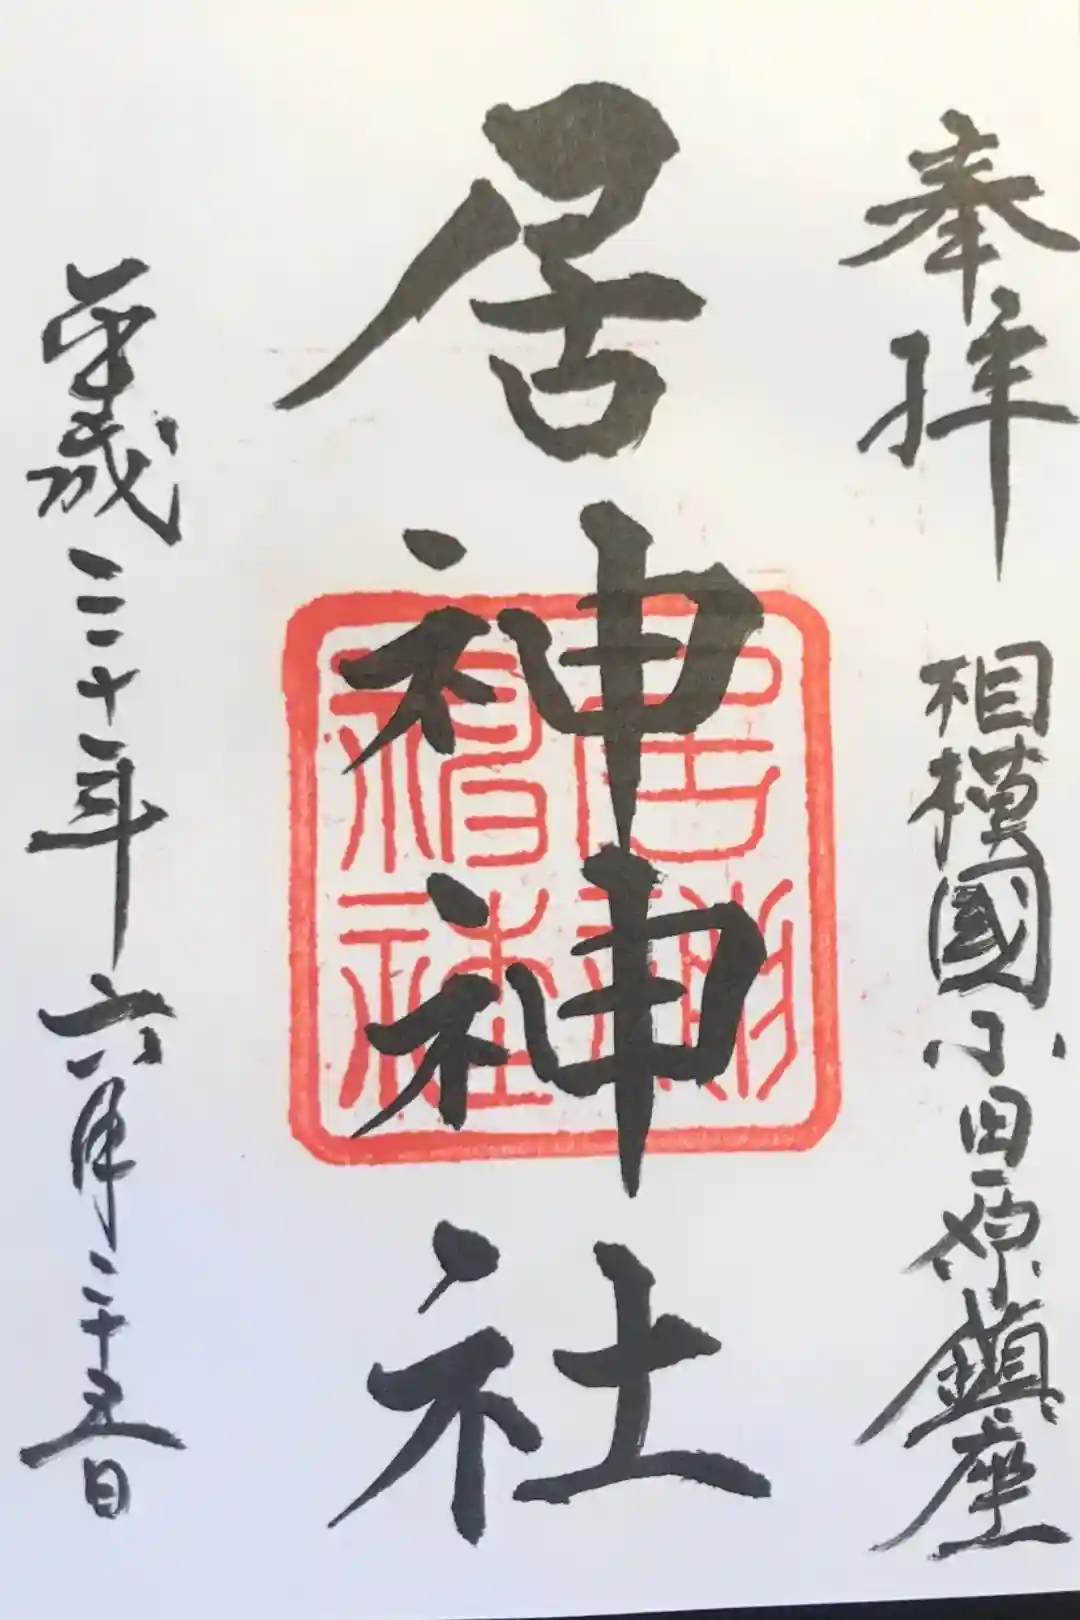 奉拝　相模國小田原鎮座
居神神社
居神
神社
平成三十年六月二十五日